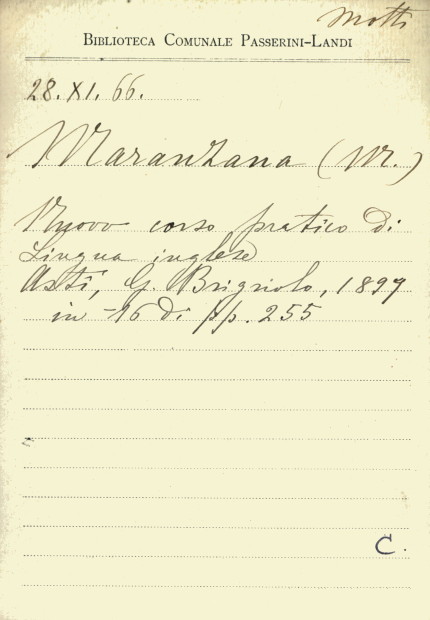 Motti
BIBLIOTECA COMUNALE PASSERINI-LANDI
28. XI. 66.
Maranzana (M.)
Nuovo corso pratico di
Lingua inglese
Asti, G. Brignolo, 1897
in -16 di pp. 255
C.